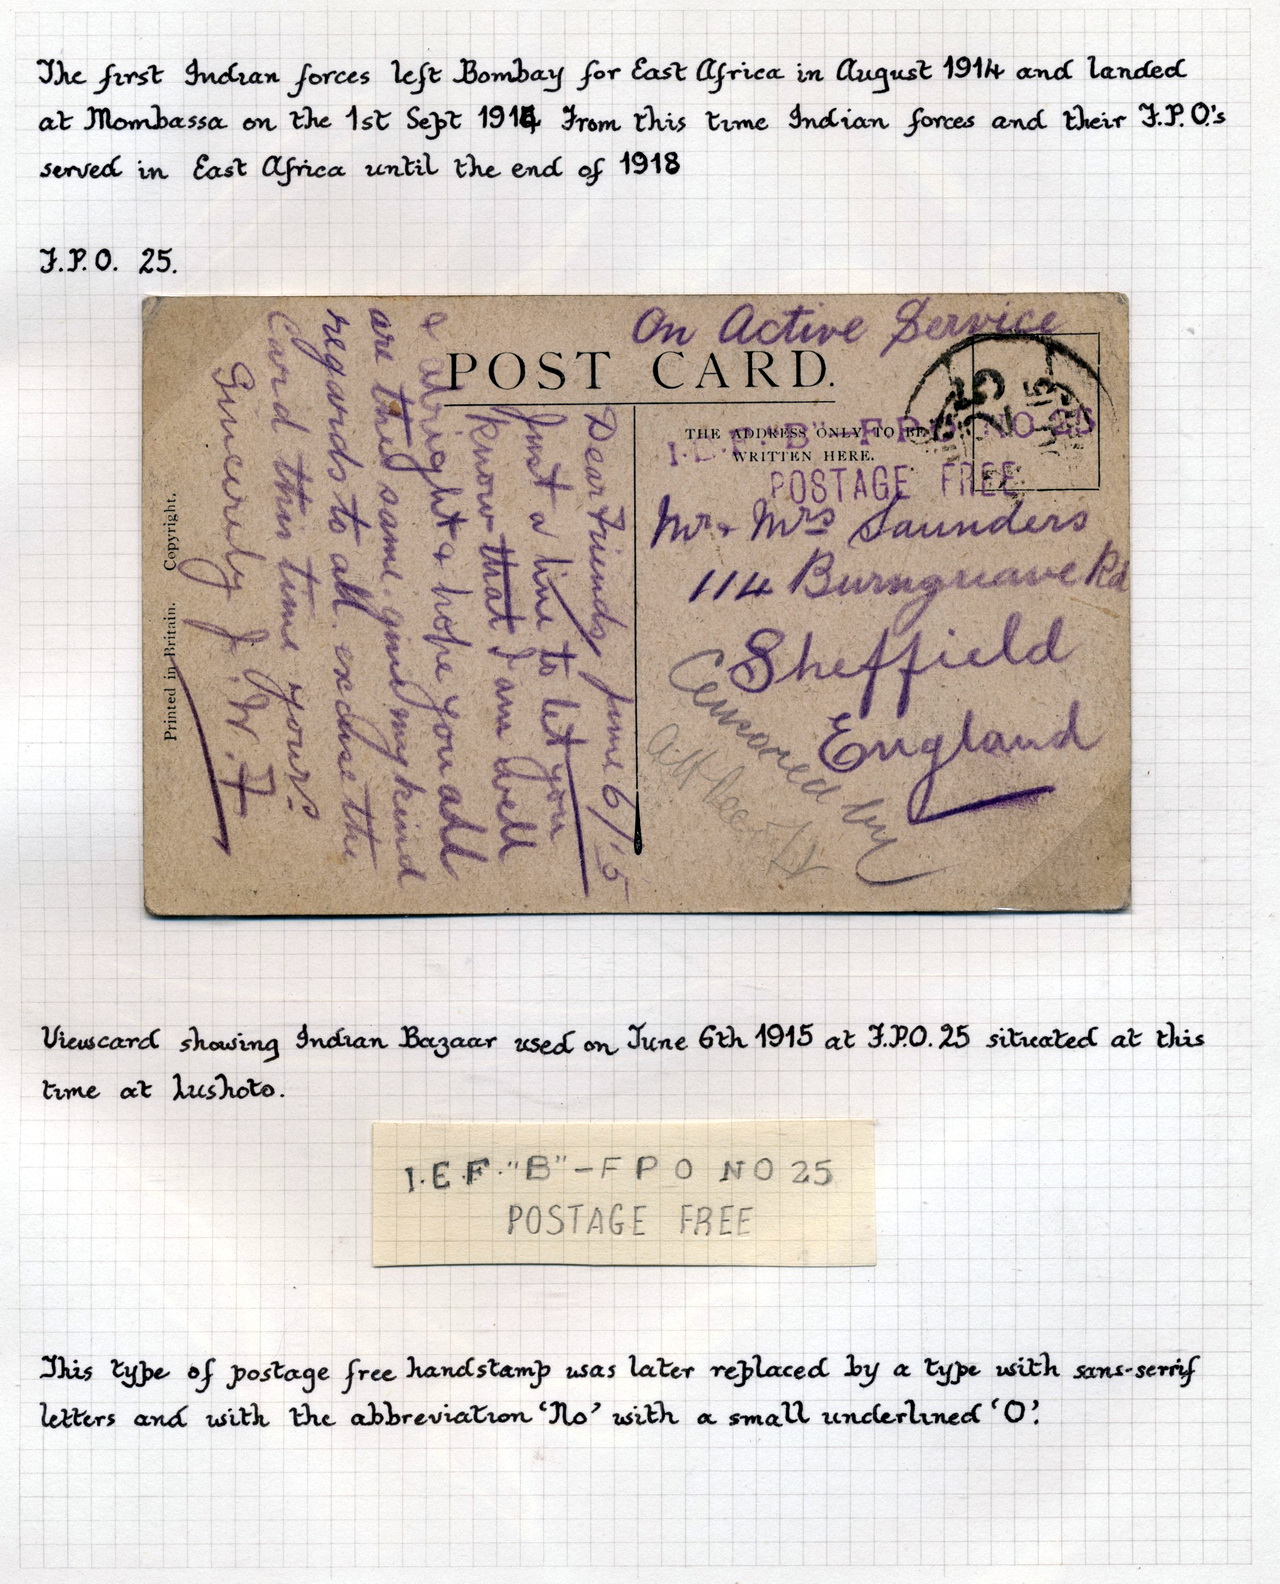 The first Indian forces left Bombay for East Africa in August 1914 and landed
at Mombassa on the 1st Sept 1914 From this time Indian forces and their F.P.O.'s
served in East Africa until the end of 1918
F.P.O. 25.
On Active Service
POST CARD.
THE ADDRESS ONLY TO BE
WRITTEN HERE.
I.E.F. "B" - F P O NO 25
POSTAGE FREE
Mr & Mrs Saunders
114 Burngreave Rd
Sheffield
England
Censored by
Dear Friends June 6/15
Just a line to let you
know that I am well
& alright & hope you all
are the same. give my kind
regards to all. excuse the
card this time yours
Sincerely J. W. F
Printed in Britain. Copyright.
Viewcard showing Indian Bazaar used on June 6th 1915 at F.P.O. 25 situated at this
time at Lushoto.
I.E.F. "B" - F P O NO 25
POSTAGE FREE
This type of postage free handstamp was later replaced by a type with sans-serrif
letters and with the abbreviation 'No' with a small underlined 'O'.